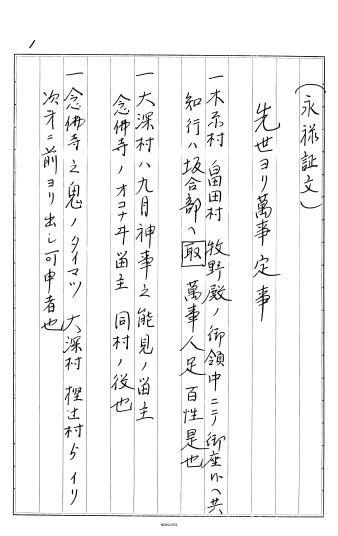 1
(永禄証文)
先世ヨリ萬事定事
一木ノ原村 畠田村 牧野殿ノ御領中ニテ御座候ヘ共
知行ハ坂合部ヘ取 萬事人足百性是也
一大深村ハ九月神事之能見ノ當主
念佛寺ノオコナヰ當主 同村ノ役也
一念佛寺之鬼ノタイマツ 大深村 樫辻村ゟイリ
次才ニ前ヨリ出し可申者也
KOKUYO